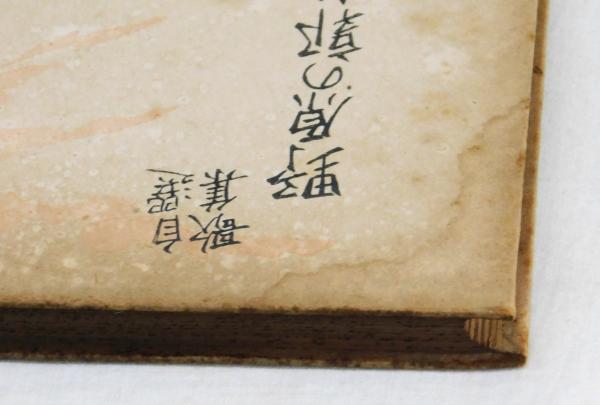 自選
歌集
野原の郭